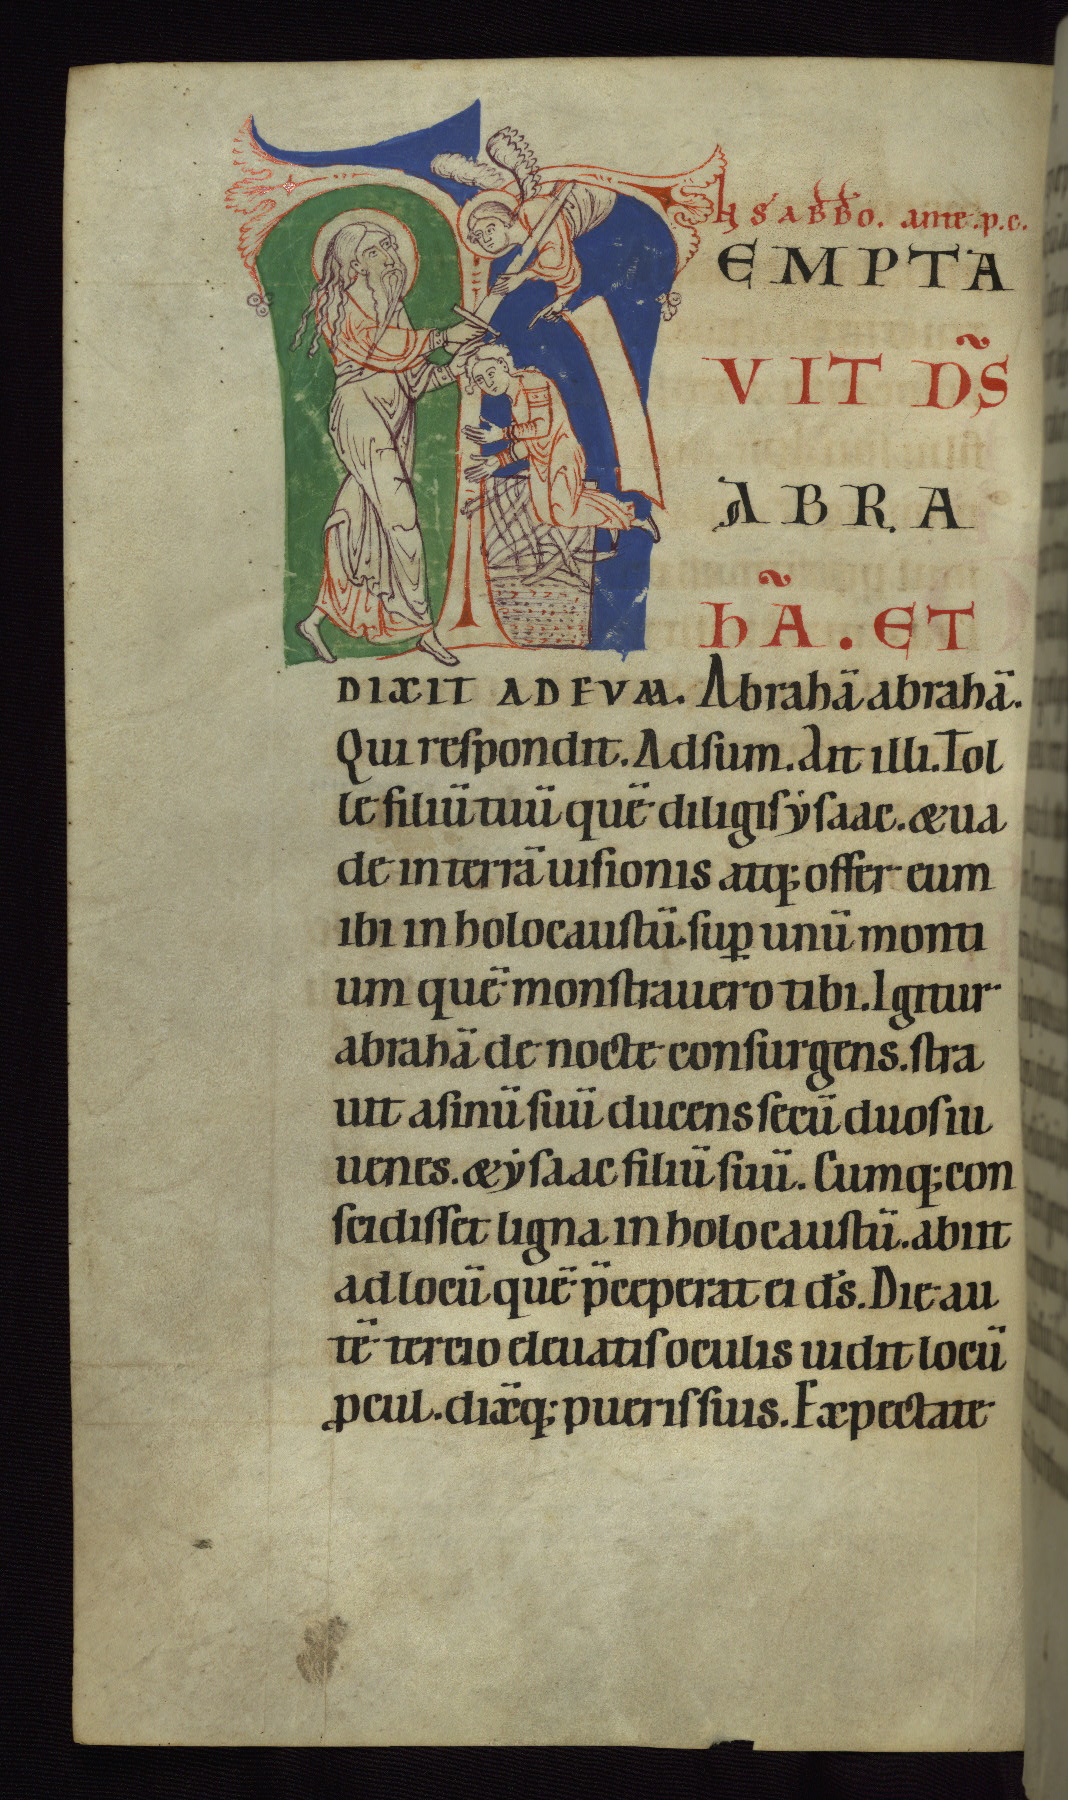 SABBO. ante. p. c.
TEMPTA
VIT DS̃
ABRA
HÃ. ET
DIXIT AD EVM. Abrahã abrahã.
Qui respondit. Adsum. Ait illi. Tol
le filiũ tuũ quẽ diligis ẏsaac. & ua
de in terrã uisionis atq; offer eum
ibi in holocaustũ. sup̱ unũ monti
um quẽ monstrauero tibi. Igitur
abrahã de nocte consurgens. stra
uit asinũ suũ ducens secũ duos iu
uenes. & ẏsaac filiũ suũ. Cumq; con
scidisset ligna in holocaustũ. abiit
ad locũ quẽ p̃ceperat ei ds̃. Die au
tẽ tercio eleuatis oculis uidit locũ
ꝓcul. dix̃q; pueris suis. Expectate